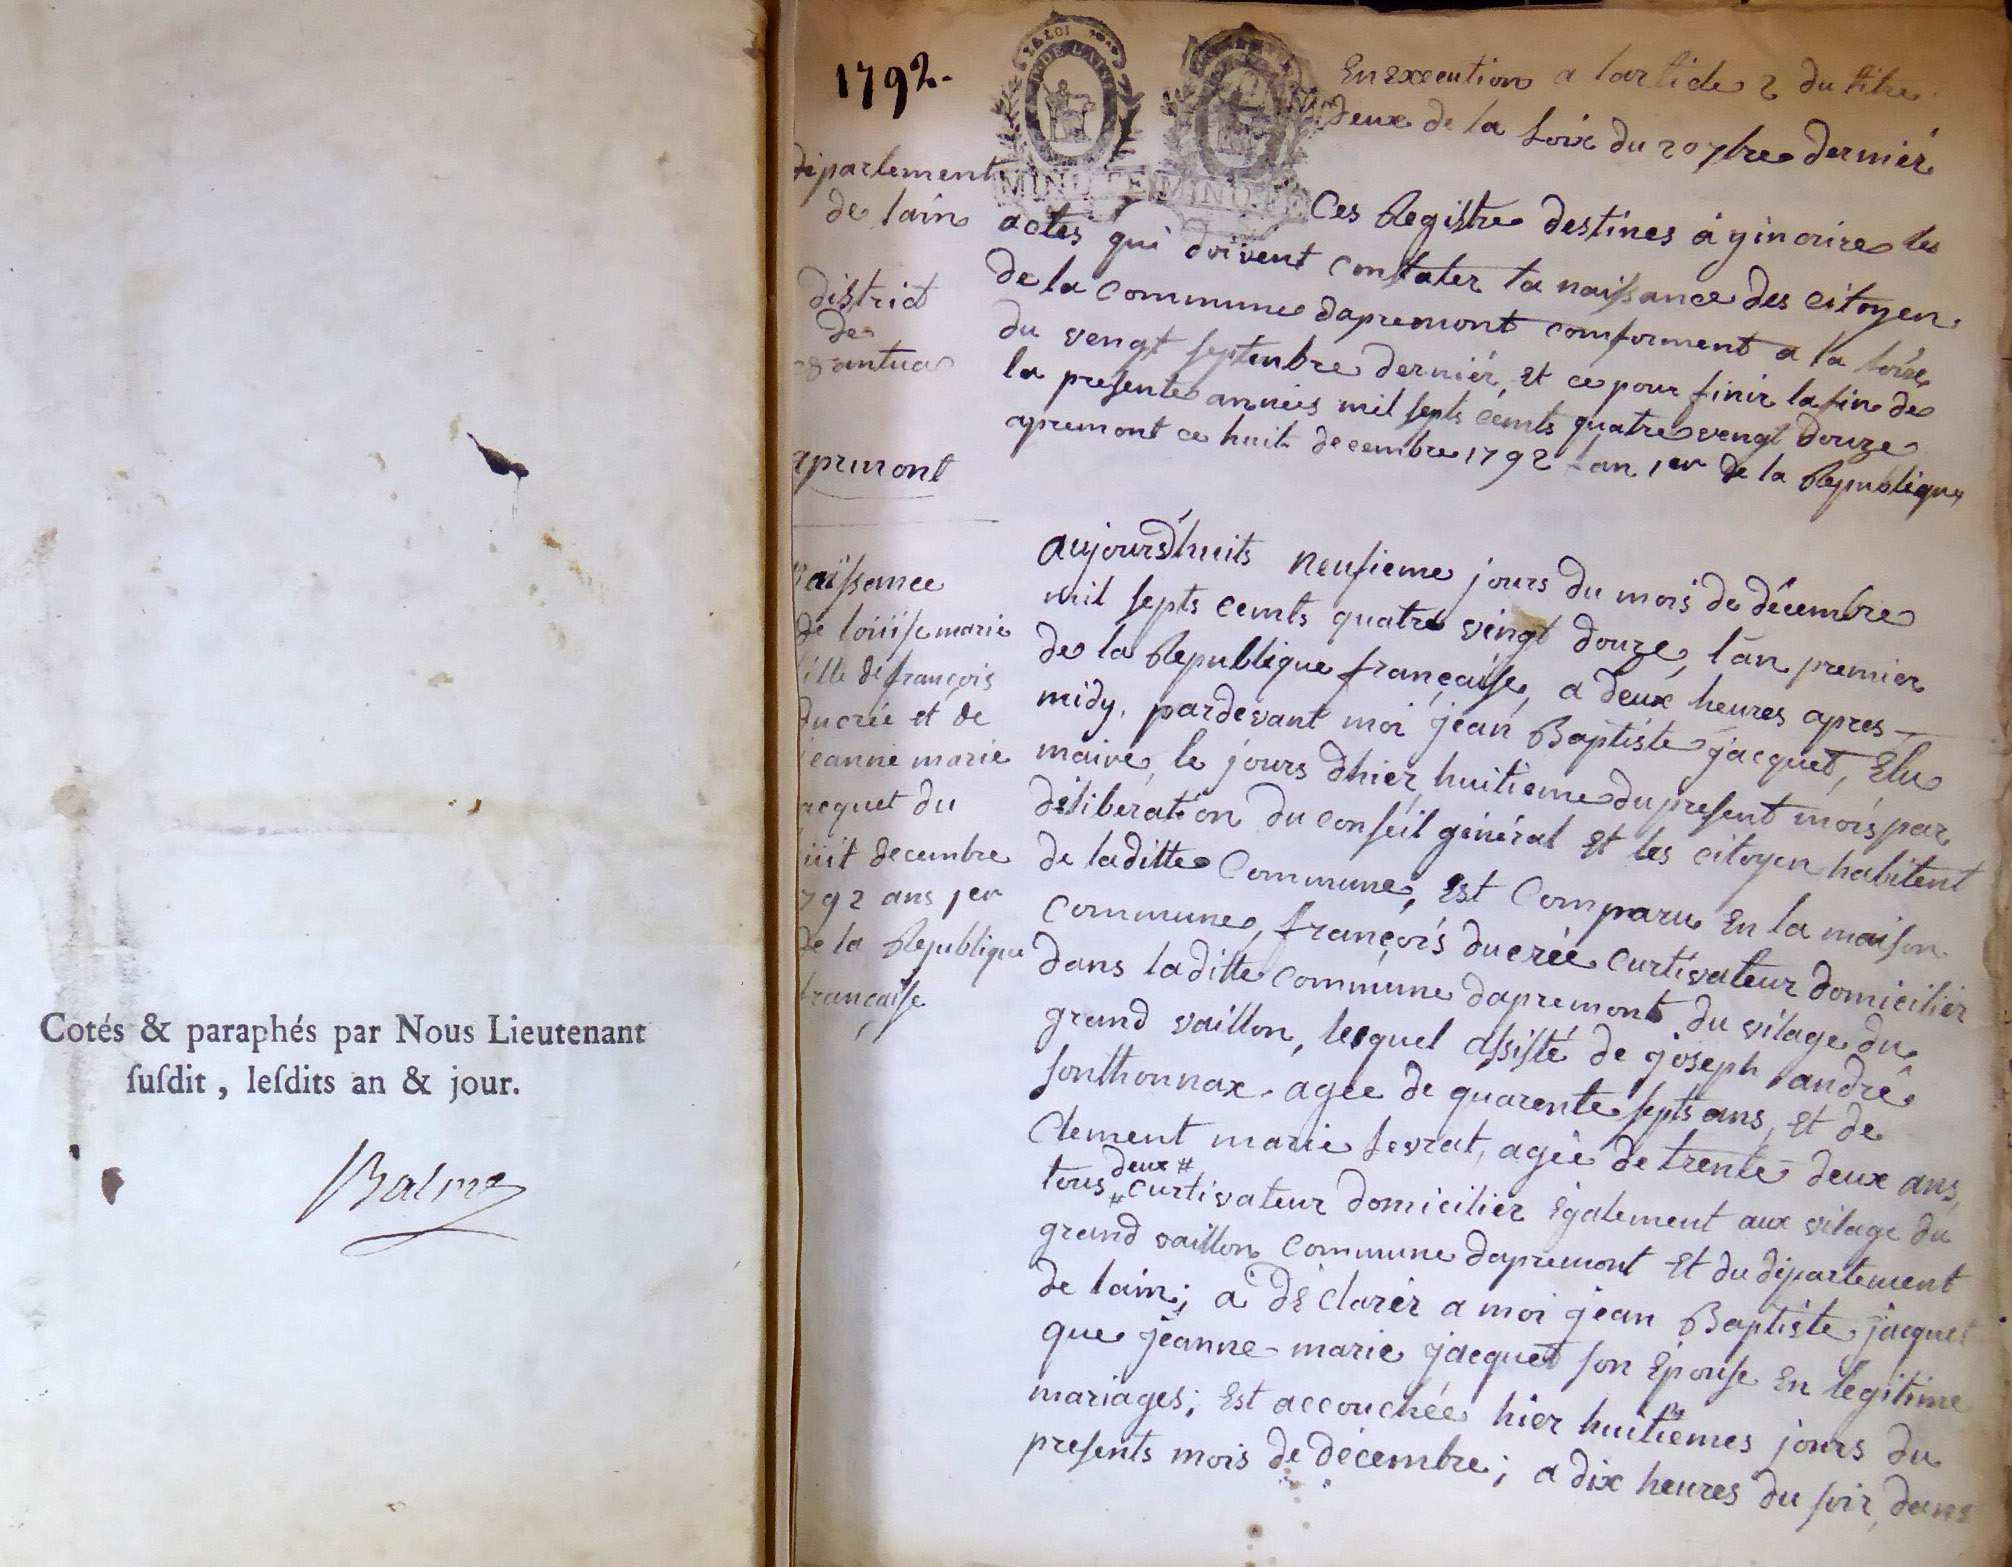 Cotés & paraphés par Nous Lieutenant
ſuſdit, leſdits an & jour.
Balme
1792.
LA LOI
MINUTE MINUTE
En execution a larticle 2 du titre
deux de la loix du 20 7bre dernier
departement
de lain
district
de
nantua
apremont
Ces Registre destines à y inscrire les
actes qui doivent constater la naissance des citoyen
de la commune dapremont comforment a la loix
du vengt septenbre dernier, et ce pour finir la fin de
la presente annéés mil septs cemts quatre vengt douze
apremont ce huit decembre 1792 lan 1er de la Republique
naissance
de loüise marie
fille de françois
ducrée et de
jeanne marie
jacquet du
huit decembre
1792 ans 1er
de la Republique
française
aujours d'huits neufieme jours du mois de décembre
mil septs cemts quatre vingt douze, lan premier
de la Republique française, a deux heures apres
midy, pardevant moi jean Baptiste jacquet, Elu
maire, le jours dhier, huitieme du present mois par
délibération du conseil général et les citoyen habitent
de laditte Commune, Est Comparu En la maison
Commune, françois ducrée curtivateur domicilier
dans laditte commune dapremont du vilage du
grand vaillon, lesquel assisté de joseph andré
sonthonnax agée de quarente septs ans, et de
Clement marie sevrat, agée de trente deux ans,
tous deux # # curtivateur domicilier Egalement aux vilage du
grand vaillon Commune dapremont et du département
de lain; a déclarer a moi jean Baptiste jacquet
que jeanne-marie jacquet son Epouse En legitime
mariages; Est accouchée hier huitièmes jours du
presents mois de décembre; a dix heures du soir, dans